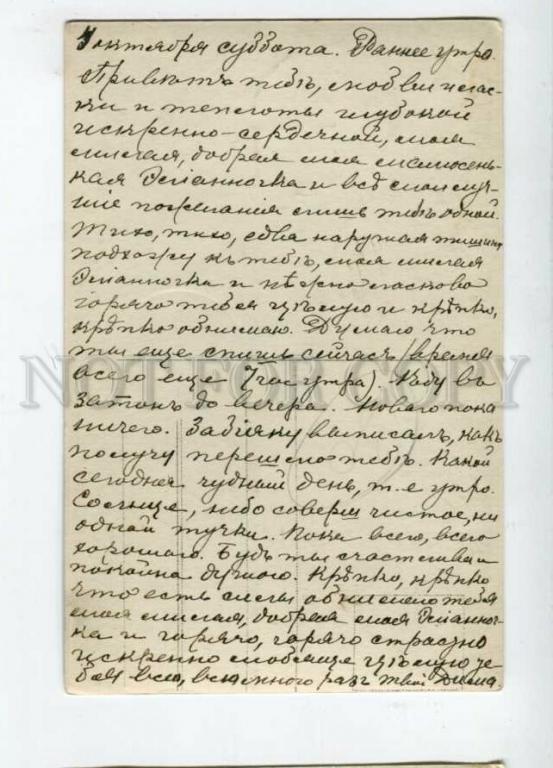 7 октября суббота. Раннее утро.
Привѣтъ тебѣ, любви и лас-
ки и теплоты глубокой
искренно-сердечной, моя
милая, добрая моя малюсень-
кая и всѣ мои луч-
шіе пожеланія лишь тебѣ одной.
Тихо, тихо, едва нарушая тишину
подхожу къ тебѣ, моя милая
и нѣжно ласково
горячо тебя цѣлую и крѣпко,
крѣпко обнимаю. Думаю что
ты еще спишь сейчасъ (время
всего еще 7 час утра). Ѣду въ
Затонъ до вечера. Новаго пока
ничего. выписалъ, какъ
получу перешлю тебѣ. Какой
сегодня чудный день, т.е утро.
Солнце, небо соверш чистое, ни
одной тучки. Пока всего, всего
хорошаго. Будь ты счастлива и
покойна душою. Крѣпко, крѣпко
что есть силы обнимаю тебя
моя милая, добрая моя
ка и горячо, горячо страстно
искренно любяще цѣлую те
бя всю, всю много разъ твой Дима
NOT FOR COPY